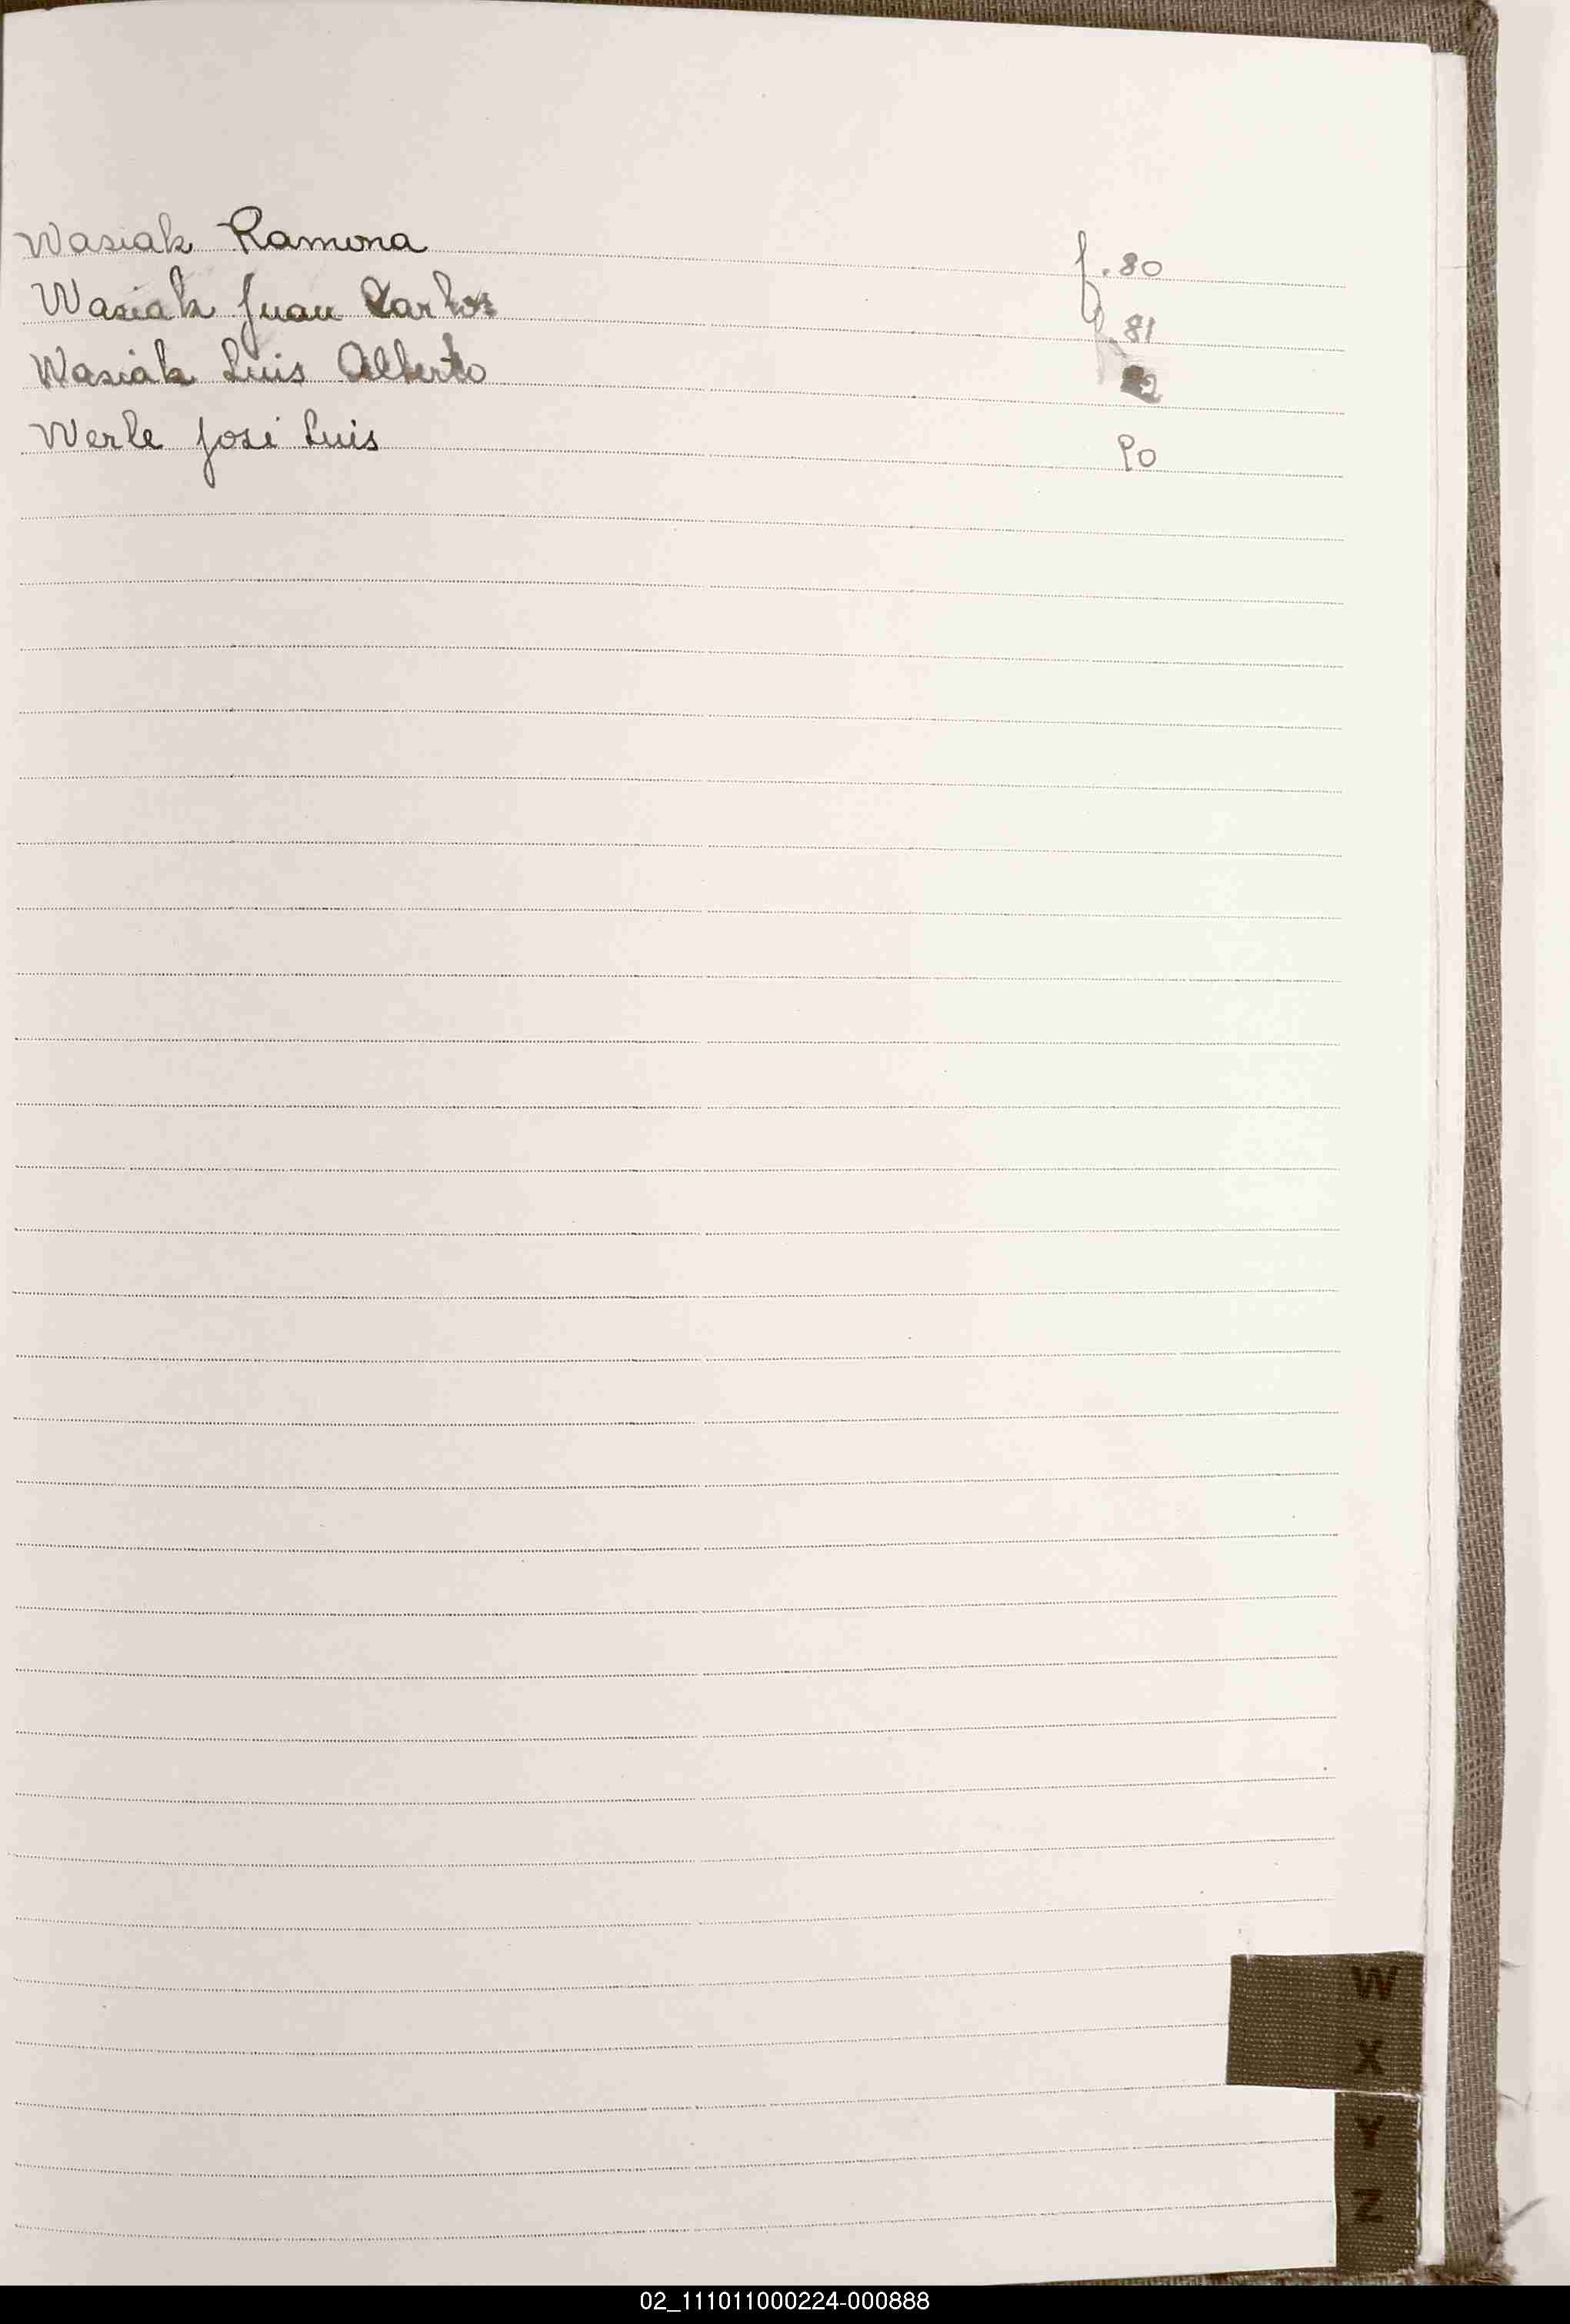 Wasiak Ramona f. 80
Wasiak Juan Carlos 81
Wasiak Luis Alberto 82
Werle José Luis 90
W
X
Y
Z
02_111011000224-000888